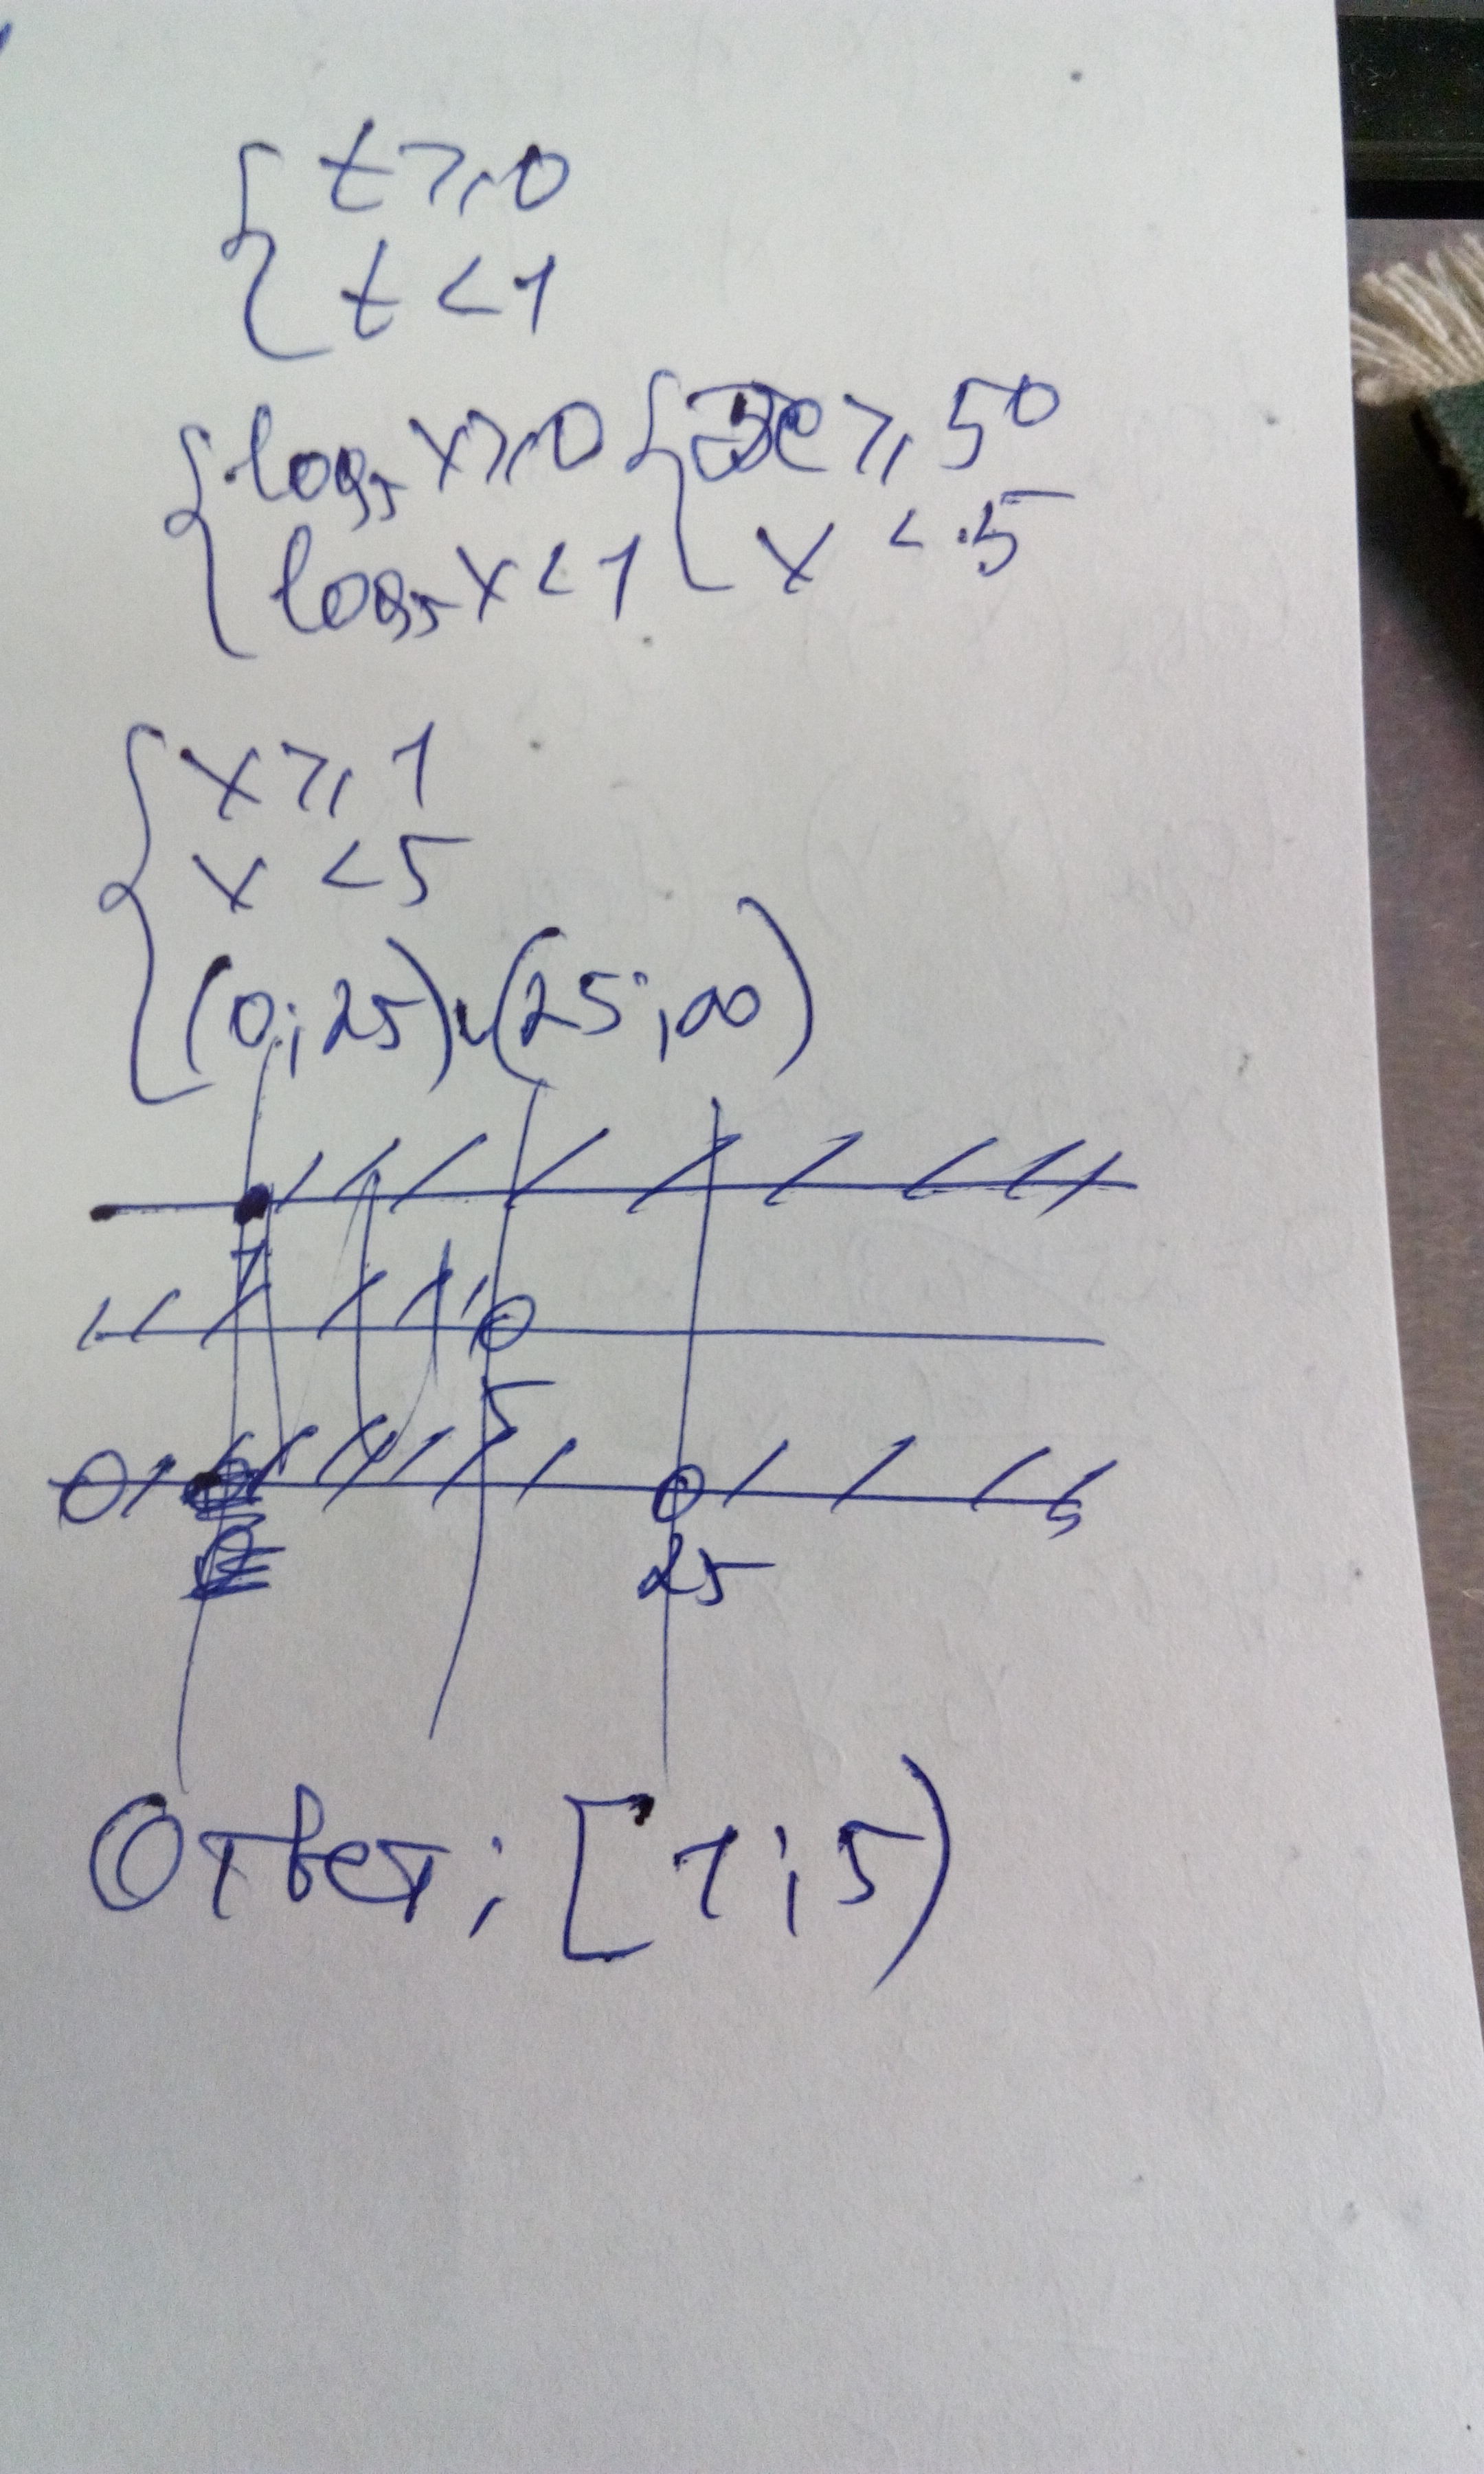 { t ≥ 0
t < 1
{ log₅ x ≥ 0 { x ≥ 5⁰
log₅ x < 1 x < 5
{ x ≥ 1
x < 5
(0; 25) ∪ (25; ∞)
1
5
0
25
Ответ; [1; 5)